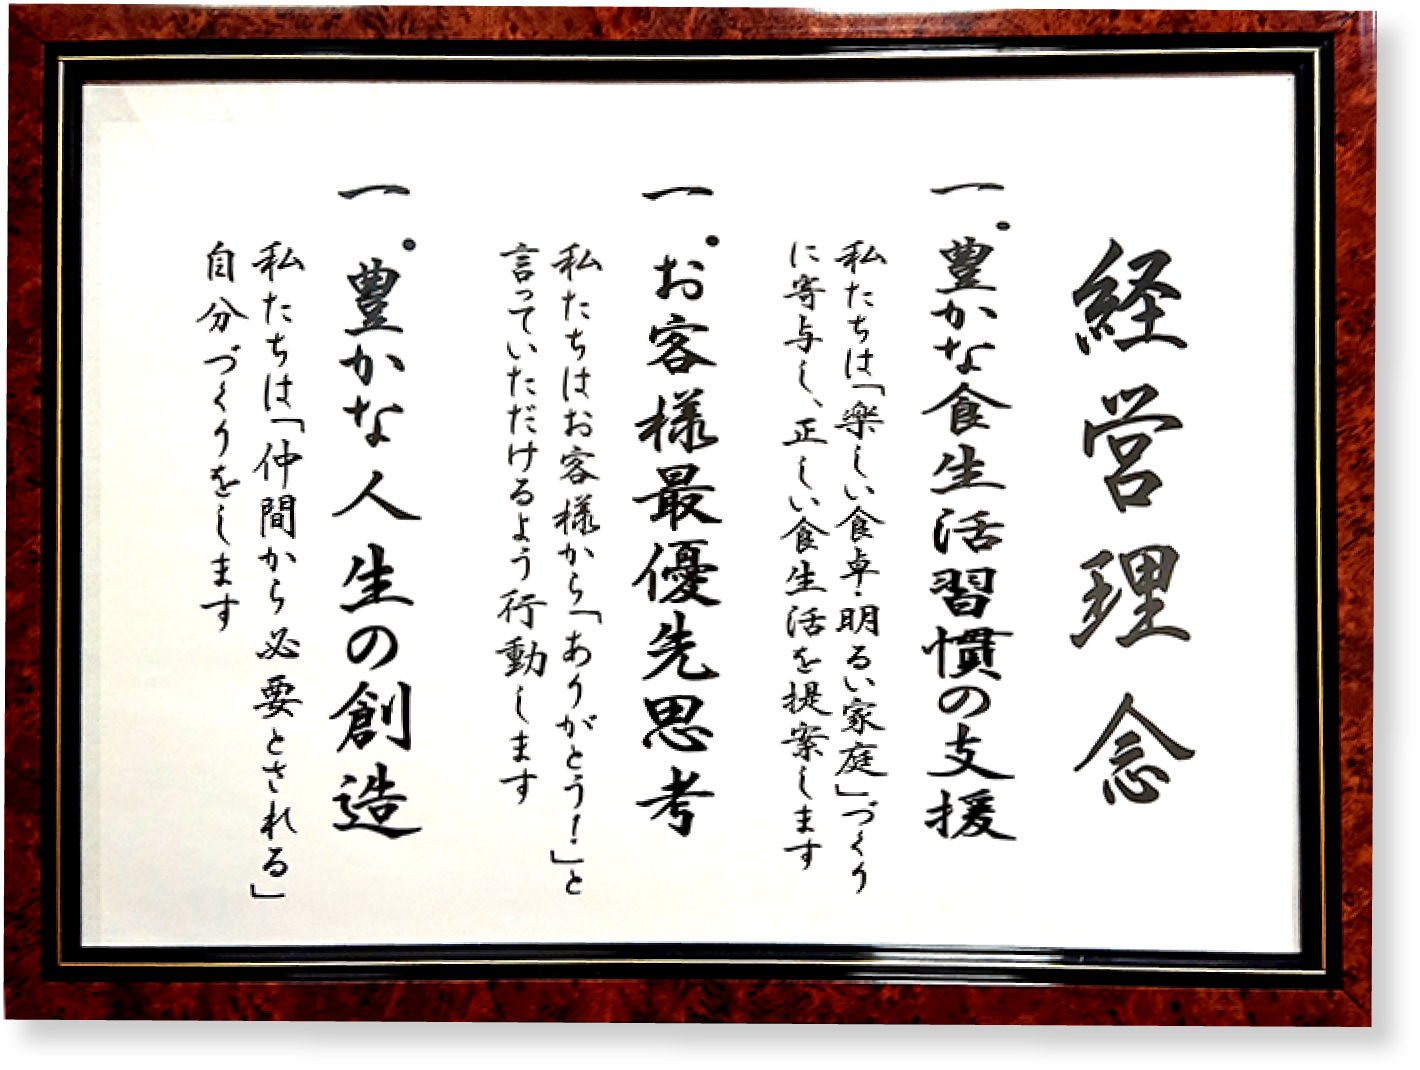 経営理念
一.豊かな食生活習慣の支援
私たちは「楽しい食卓・明るい家庭」づくり
に寄与し、正しい食生活を提案します
一.お客様最優先思考
私たちはお客様から「ありがとう!」と
言っていただけるよう行動します
一.豊かな人生の創造
私たちは「仲間から必要とされる」
自分づくりをします